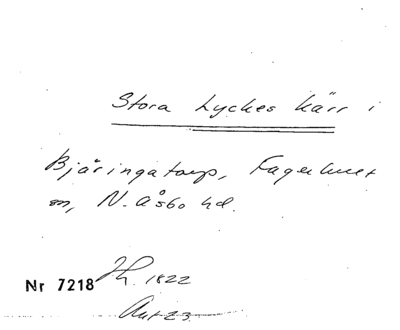 Stora Lyckes kärr i
Bjäringatorp, Fagerhult
sn, N. Åsbo hd.
Nr 7218 1822
Akt 23